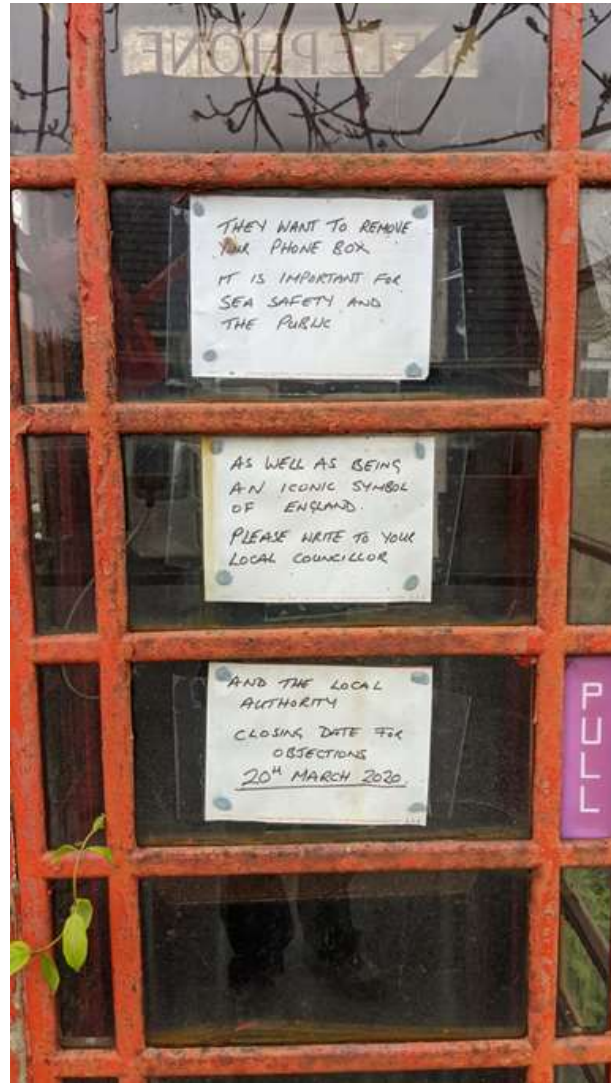 TELEPHONE
THEY WANT TO REMOVE
YOUR PHONE BOX
IT IS IMPORTANT FOR
SEA SAFETY AND
THE PUBLIC
AS WELL AS BEING
AN ICONIC SYMBOL
OF ENGLAND.
PLEASE WRITE TO YOUR
LOCAL COUNCILLOR
AND THE LOCAL
AUTHORITY
CLOSING DATE FOR
OBJECTIONS
20TH MARCH 2020.
PULL